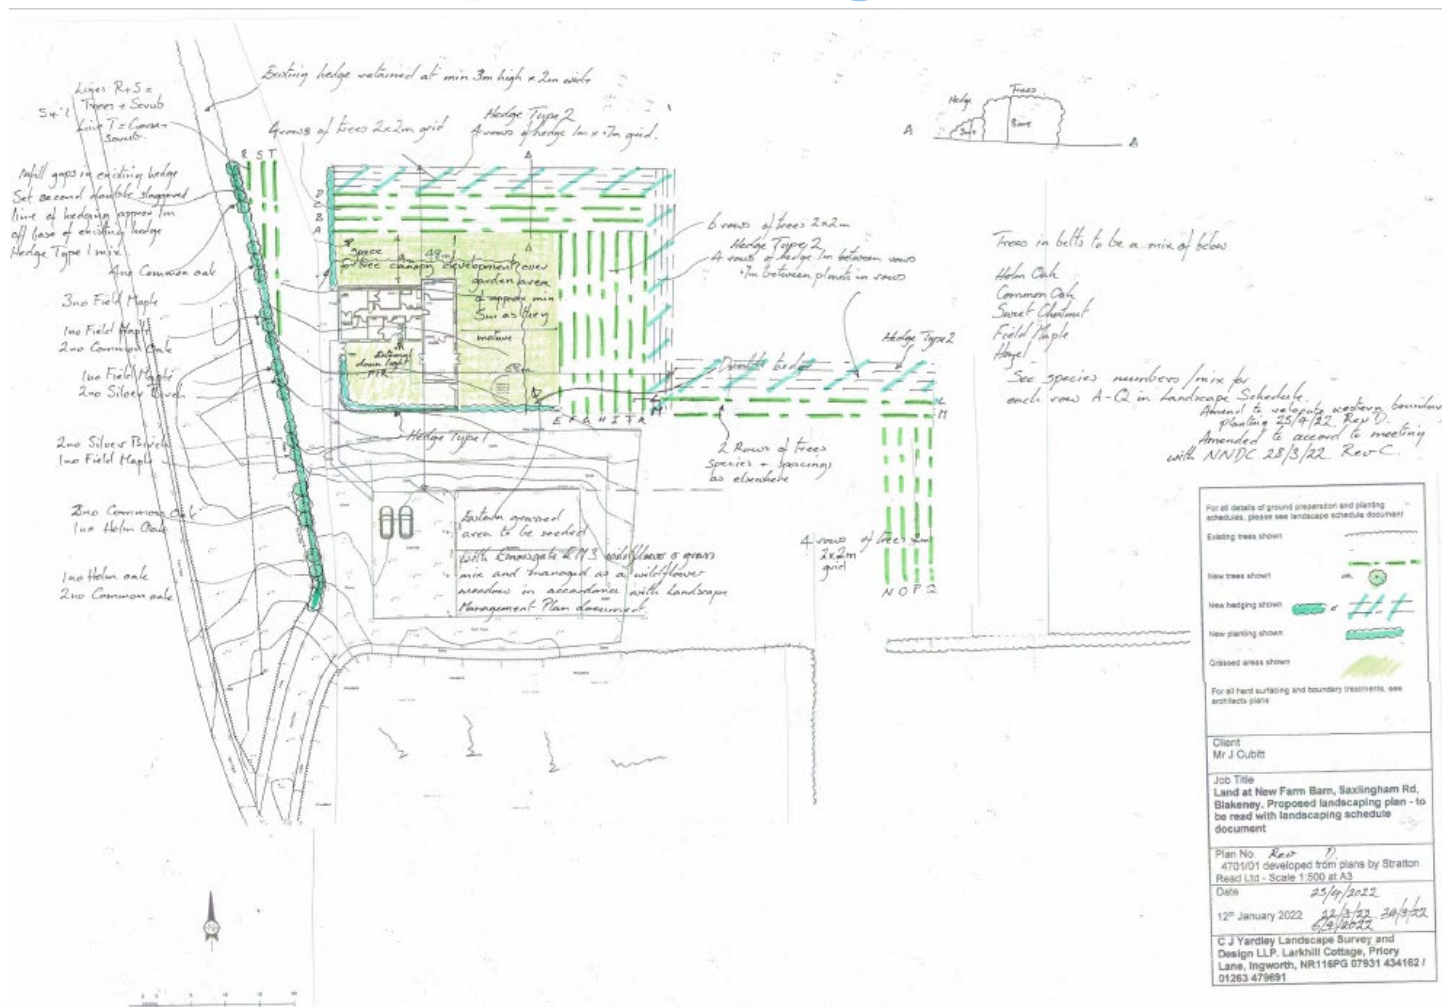 Existing hedge retained at min 3m high x 2m wide
Lines R+S =
Trees + Scrub
Line T = Gorse +
scrub.
Hedge Type 2
4 rows of trees 2x2m grid
4 rows of hedge 1m x .7m grid.
Hedge
Trees
3m
8m
A
A
R S T
Infill gaps in existing hedge
Set second double staggered
line of hedging approx 1m
off base of existing hedge
Hedge Type 1 mix
D
C
B
A
4no Common oak
3no Field Maple
1no Field Maple
2no Common Oak
1no Field Maple
2no Silver Birch
2no Silver Birch
1no Field Maple
1no Holm Oak
1no Holm oak
2no Common oak
Space
for tree canopy development over
garden area
of approx min
5m as they
mature
External
down light
PIR
6 rows of trees 2x2m
Hedge Type 2
4 rows of hedge 1m between rows
.7m between plants in rows
Hedge Type 2
Double hedge
L
M
E F G H I J K
Hedge Type 1
2 Rows of trees
Species + spacings
as elsewhere
4 rows of trees 2m
2x2m
grid
N O P Q
Eastern grassed
area to be seeded
with Emorsgate EM3 wildflower & grass
mix and managed as a wildflower
meadow in accordance with Landscape
Management Plan document.
Trees in belts to be a mix of below
Holm Oak
Common Oak
Sweet Chestnut
Field Maple
Hazel
See species numbers/mix for
each row A-Q in Landscape Schedule.
Amend to relocate western boundary
planting 25/4/22 Rev D.
Amended to accord to meeting
with NNDC 28/3/22 Rev C.
For all details of ground preparation and planting
schedules, please see landscape schedule document
Existing trees shown
New trees shown
or
New hedging shown
New planting shown
Grassed areas shown
For all hard surfacing and boundary treatments, see
architects plans
Client
Mr J Cubitt
Job Title
Land at New Farm Barn, Saxlingham Rd,
Blakeney. Proposed landscaping plan - to
be read with landscaping schedule
document
Plan No. Rev D.
4701/01 developed from plans by Stratton
Read Ltd - Scale 1:500 at A3
Date 25/4/2022
12th January 2022
C J Yardley Landscape Survey and
Design LLP. Larkhill Cottage, Priory
Lane, Ingworth, NR116PG 07931 434182 /
01263 479691